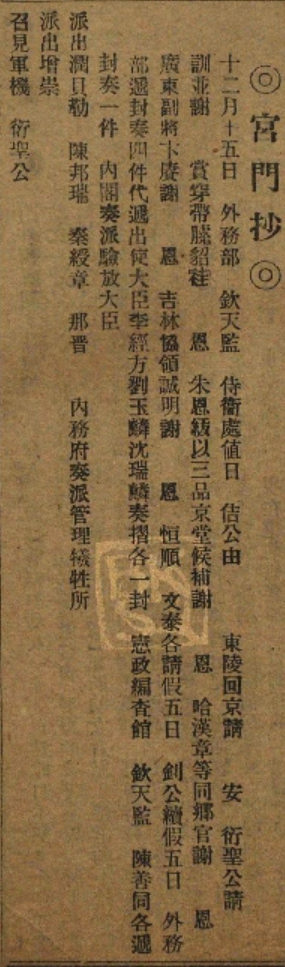 ◎宮門抄◎
十二月十五日 外務部 欽天監 侍衞處值日 佶公由 東陵回京請 安 衍聖公請
訓並謝 賞穿帶膆貂褂 恩 朱恩紱以三品京堂候補謝 恩 哈漢章等同鄉官謝 恩
廣東副將卞賡謝 恩 吉林協領誠明謝 恩 恒順 文泰各請假五日 釗公續假五日 外務
部遞封奏四件代遞出使大臣李經方劉玉麟沈瑞麟奏摺各一封 憲政編查館 欽天監 陳善同各遞
封奏一件 內閣奏派驗放大臣
派出潤貝勒 陳邦瑞 秦綬章 那晋 內務府奏派管理犧牲所
派出增崇
召見軍機 衍聖公